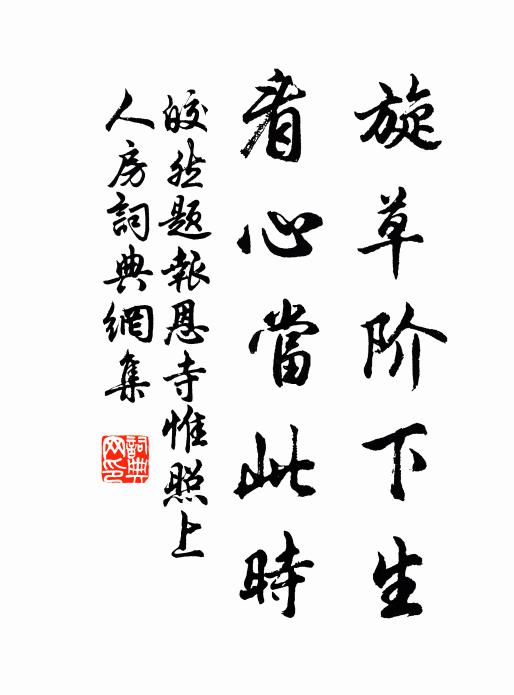 旋草阶下生
看心當此時
皎然題報恩寺惟照上
人房詞典網集
詞典
网印